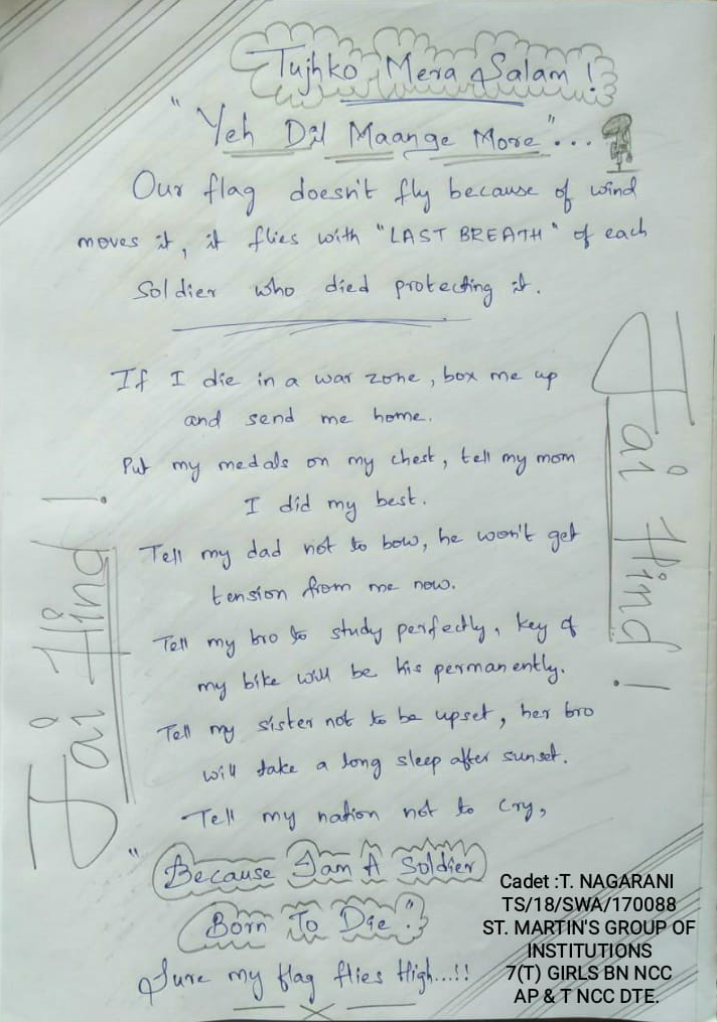 Tujhko Mera Salam !
"Yeh Dil Maange More"...
Our flag doesn't fly because of wind
moves it, it flies with "LAST BREATH" of each
Soldier who died protecting it.
If I die in a war zone, box me up
and send me home.
Put my medals on my chest, tell my mom
I did my best.
Tell my dad not to bow, he won't get
tension from me now.
Tell my bro to study perfectly, key of
my bike will be his permanently.
Tell my sister not to be upset, her bro
will take a long sleep after sunset.
Tell my nation not to cry,
"Because I am A Soldier
Born To Die".
Sure my flag flies High...!!
Jai Hind !
Jai Hind !
Cadet :T. NAGARANI
TS/18/SWA/170088
ST. MARTIN'S GROUP OF
INSTITUTIONS
7(T) GIRLS BN NCC
AP & T NCC DTE.